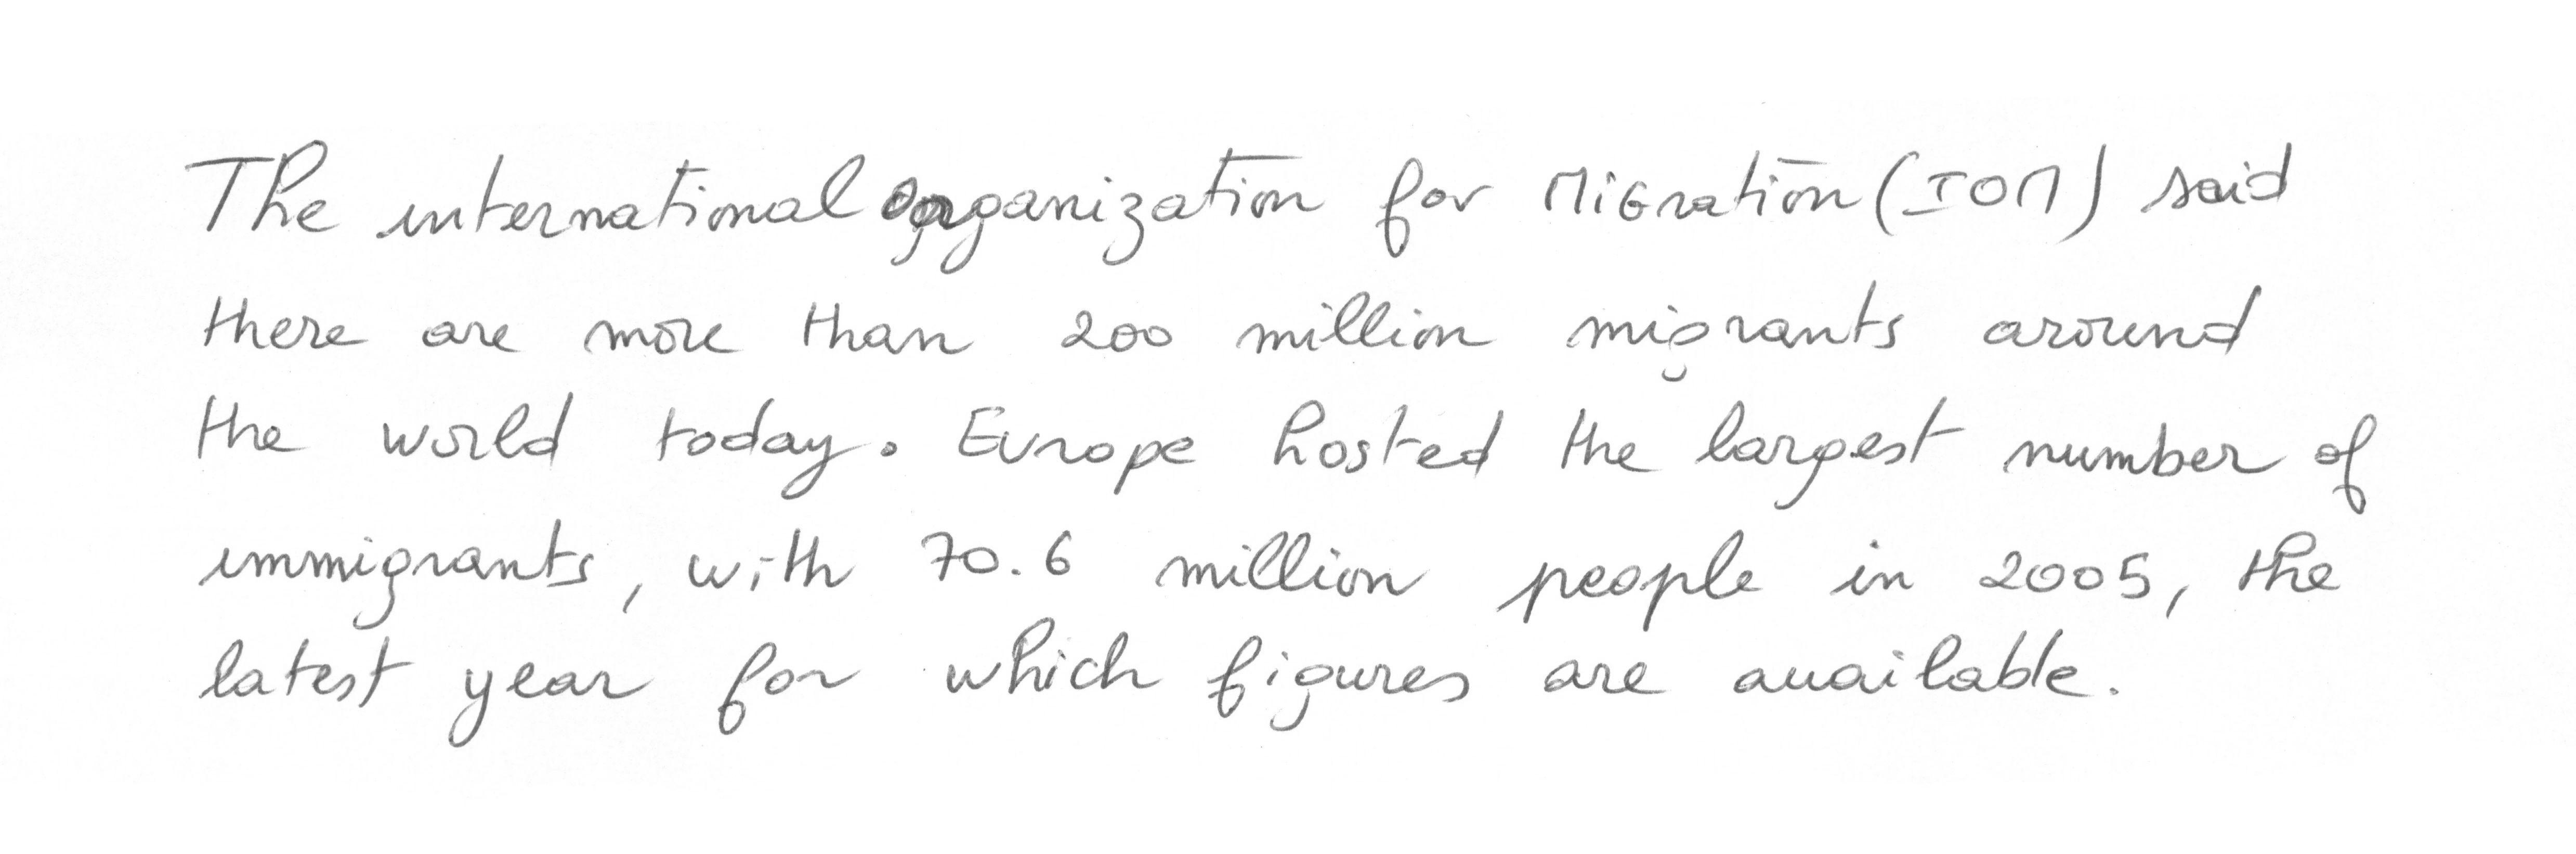 The international organization for Migration (IOM) said
there are more than 200 million migrants around
the world today. Europe hosted the largest number of
immigrants, with 70.6 million people in 2005, the
latest year for which figures are available.